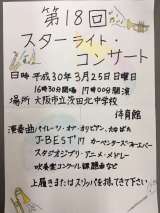 第18回
スターライト・
コンサート
日時 平成30年3月25日日曜日
16時30分開場 17時00分開演
場所 大阪市立茨田北中学校
体育館
演奏曲 パイレーツ・オブ・カリビアン、ひなげた
J-BEST'17 カーペンターズ・フォーエバー
スタジオジブリ・アニメ・メドレー
吹奏楽コンクール課題曲など
上履きまたはスリッパを持ってきて下さい